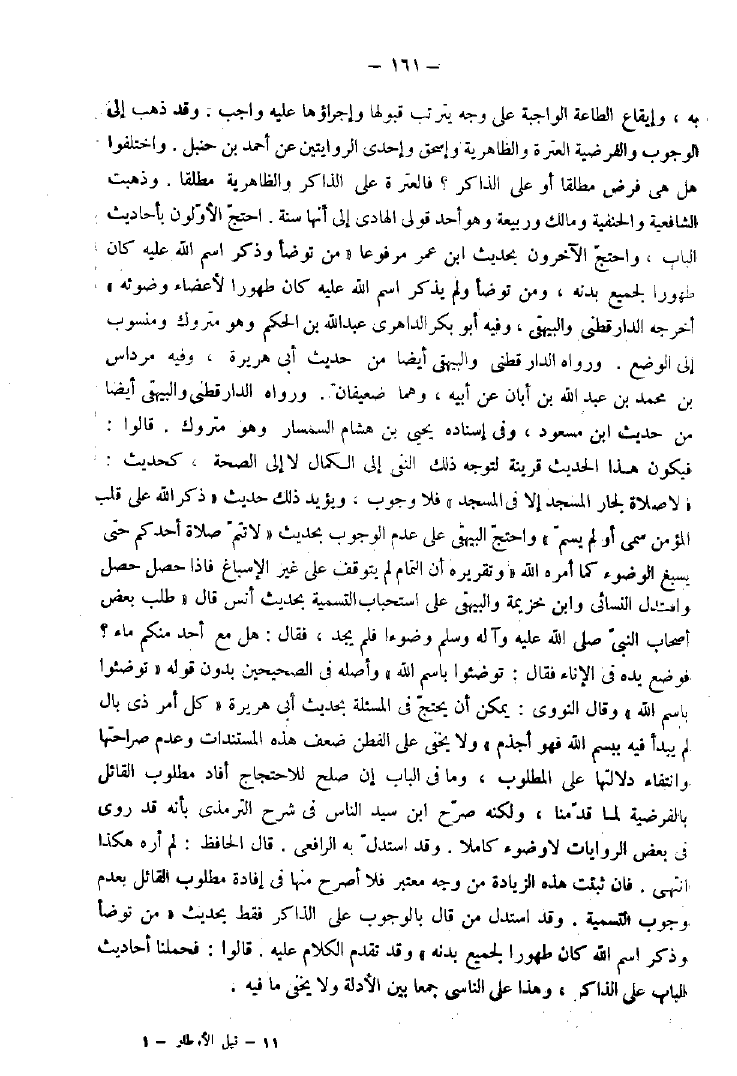 – ١٦١ –
به ، وإيقاع الطاعة الواجبة على وجه يترتب قبولها وإجراؤها عليه واجب . وقد ذهب إلى
الوجوب والفرضية العترة والظاهرية وإسحق وإحدى الروايتين عن أحمد بن حنبل . واختلفوا
هل هى فرض مطلقا أو على الذاكر ؟ فالعترة على الذاكر والظاهرية مطلقا . وذهبت
الشافعية والحنفية ومالك وربيعة وهو أحد قولى الهادى إلى أنها سنة . احتجّ الأوّلون بأحاديث
الباب ، واحتجّ الآخرون بحديث ابن عمر مرفوعا « من توضأ وذكر اسم الله عليه كان
طهورا لجميع بدنه ، ومن توضأ ولم يذكر اسم الله عليه كان طهورا لأعضاء وضوئه »
أخرجه الدارقطنى والبيهقى ، وفيه أبو بكر الداهرى عبدالله بن الحكم وهو متروك ومنسوب
إلى الوضع . ورواه الدارقطنى والبيهقى أيضا من حديث أبى هريرة ، وفيه مرداس
بن محمد بن عبد الله بن أبان عن أبيه ، وهما ضعيفان . ورواه الدارقطنى والبيهقى أيضا
من حديث ابن مسعود ، وفى إسناده يحيى بن هشام السمسار وهو متروك . قالوا :
فيكون هذا الحديث قرينة لتوجه ذلك النفى إلى الكمال لا إلى الصحة ، كحديث :
« لاصلاة لجار المسجد إلا فى المسجد » فلا وجوب ، ويؤيد ذلك حديث « ذكر الله على قلب
المؤمن سمى أو لم يسمّ » واحتجّ البيهقى على عدم الوجوب بحديث « لاتتمّ صلاة أحدكم حتى
يسبغ الوضوء كما أمره الله » وتقريره أن التمام لم يتوقف على غير الإسباغ فاذا حصل حصل
واستدل النسائى وابن خزيمة والبيهقى على استحباب التسمية بحديث أنس قال « طلب بعض
أصحاب النبىّ صلى الله عليه وآله وسلم وضوءا فلم يجد ، فقال : هل مع أحد منكم ماء ؟
فوضع يده فى الإناء فقال : توضئوا باسم الله » وأصله فى الصحيحين بدون قوله « توضئوا
باسم الله » وقال النووى : يمكن أن يحتجّ فى المسئلة بحديث أبى هريرة « كل أمر ذى بال
لم يبدأ فيه ببسم الله فهو أجذم » ولا يخفى على الفطن ضعف هذه المستندات وعدم صراحتها
وانتفاء دلالتها على المطلوب ، وما فى الباب إن صلح للاحتجاج أفاد مطلوب القائل
بالفرضية لما قدّمنا ، ولكنه صرّح ابن سيد الناس فى شرح الترمذى بأنه قد روى
فى بعض الروايات لاوضوء كاملا . وقد استدلّ به الرافعى . قال الحافظ : لم أره هكذا
انتهى . فان ثبتت هذه الزيادة من وجه معتبر فلا أصرح منها فى إفادة مطلوب القائل بعدم
وجوب التسمية . وقد استدل من قال بالوجوب على الذاكر فقط بحديث « من توضأ
وذكر اسم الله كان طهورا لجميع بدنه » وقد تقدم الكلام عليه . قالوا : فحملنا أحاديث
الباب على الذاكر ، وهذا على الناسى جمعا بين الأدلة ولا يخفى ما فيه .
١١ – نيل الأوطار – ١